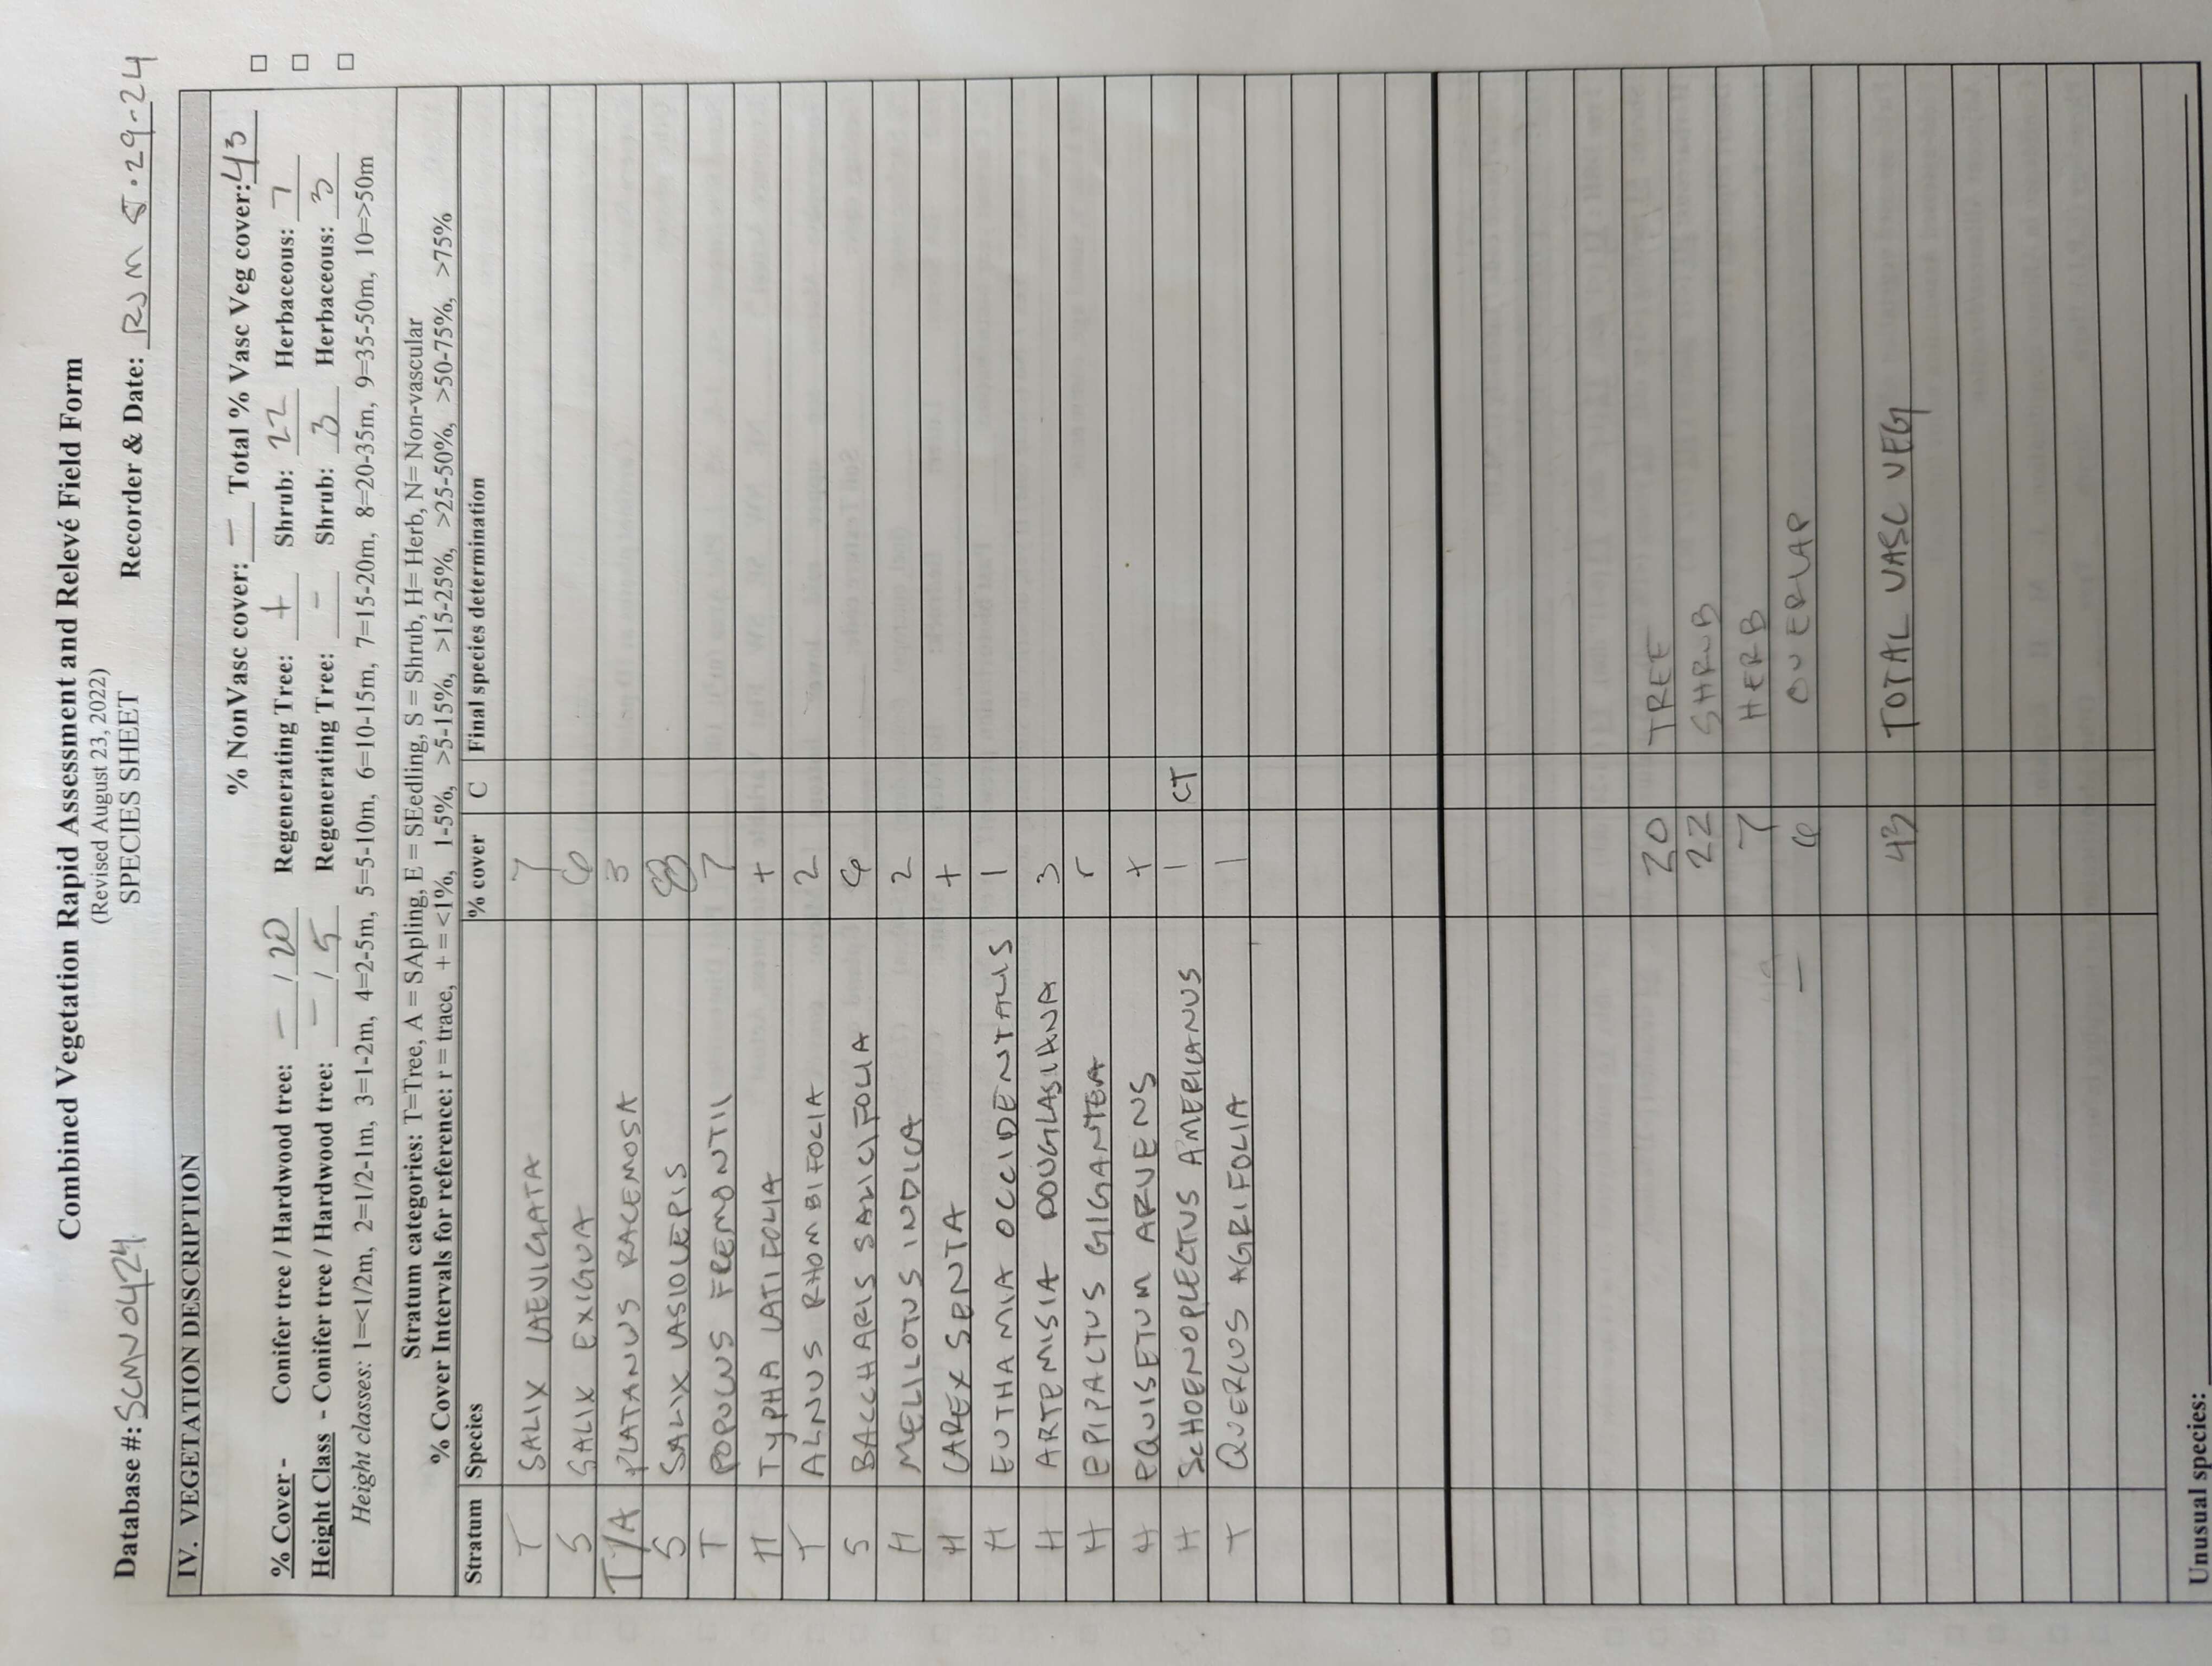 Combined Vegetation Rapid Assessment and Relevé Field Form
(Revised August 23, 2022)
SPECIES SHEET
Database #: SCMN0424 Recorder & Date: RJM 5.29-24
IV. VEGETATION DESCRIPTION
% NonVasc cover: – Total % Vasc Veg cover: 43
% Cover - Conifer tree / Hardwood tree: – / 20 Regenerating Tree: + Shrub: 22 Herbaceous: 7
Height Class - Conifer tree / Hardwood tree: – / 5 Regenerating Tree: – Shrub: 3 Herbaceous: 3
Height classes: 1=<1/2m, 2=1/2-1m, 3=1-2m, 4=2-5m, 5=5-10m, 6=10-15m, 7=15-20m, 8=20-35m, 9=35-50m, 10=>50m
Stratum categories: T=Tree, A = SApling, E = SEedling, S = Shrub, H= Herb, N= Non-vascular
% Cover Intervals for reference: r = trace, + = <1%, 1-5%, >5-15%, >15-25%, >25-50%, >50-75%, >75%
Stratum Species % cover C Final species determination
T SALIX LAEVIGATA 7
S SALIX EXIGUA 6
T/A PLATANUS RACEMOSA 3
S SALIX LASIOLEPIS
T POPULUS FREMONTII 7
H TYPHA LATIFOLIA +
T ALNUS RHOMBIFOLIA 2
S BACCHARIS SALICIFOLIA
H MELILOTUS INDICA 2
H CAREX SENTA +
H EUTHAMIA OCCIDENTALIS 1
H ARTEMISIA DOUGLASIANA 3
H EPIPACTUS GIGANTEA r
H EQUISETUM ARVENS +
H SCHOENOPLECTUS AMERICANUS 1 CT
T QUERCUS AGRIFOLIA 1
20 TREE
22 SHRUB
7 HERB
– 6 OVERLAP
43 TOTAL VASC VEG
Unusual species: